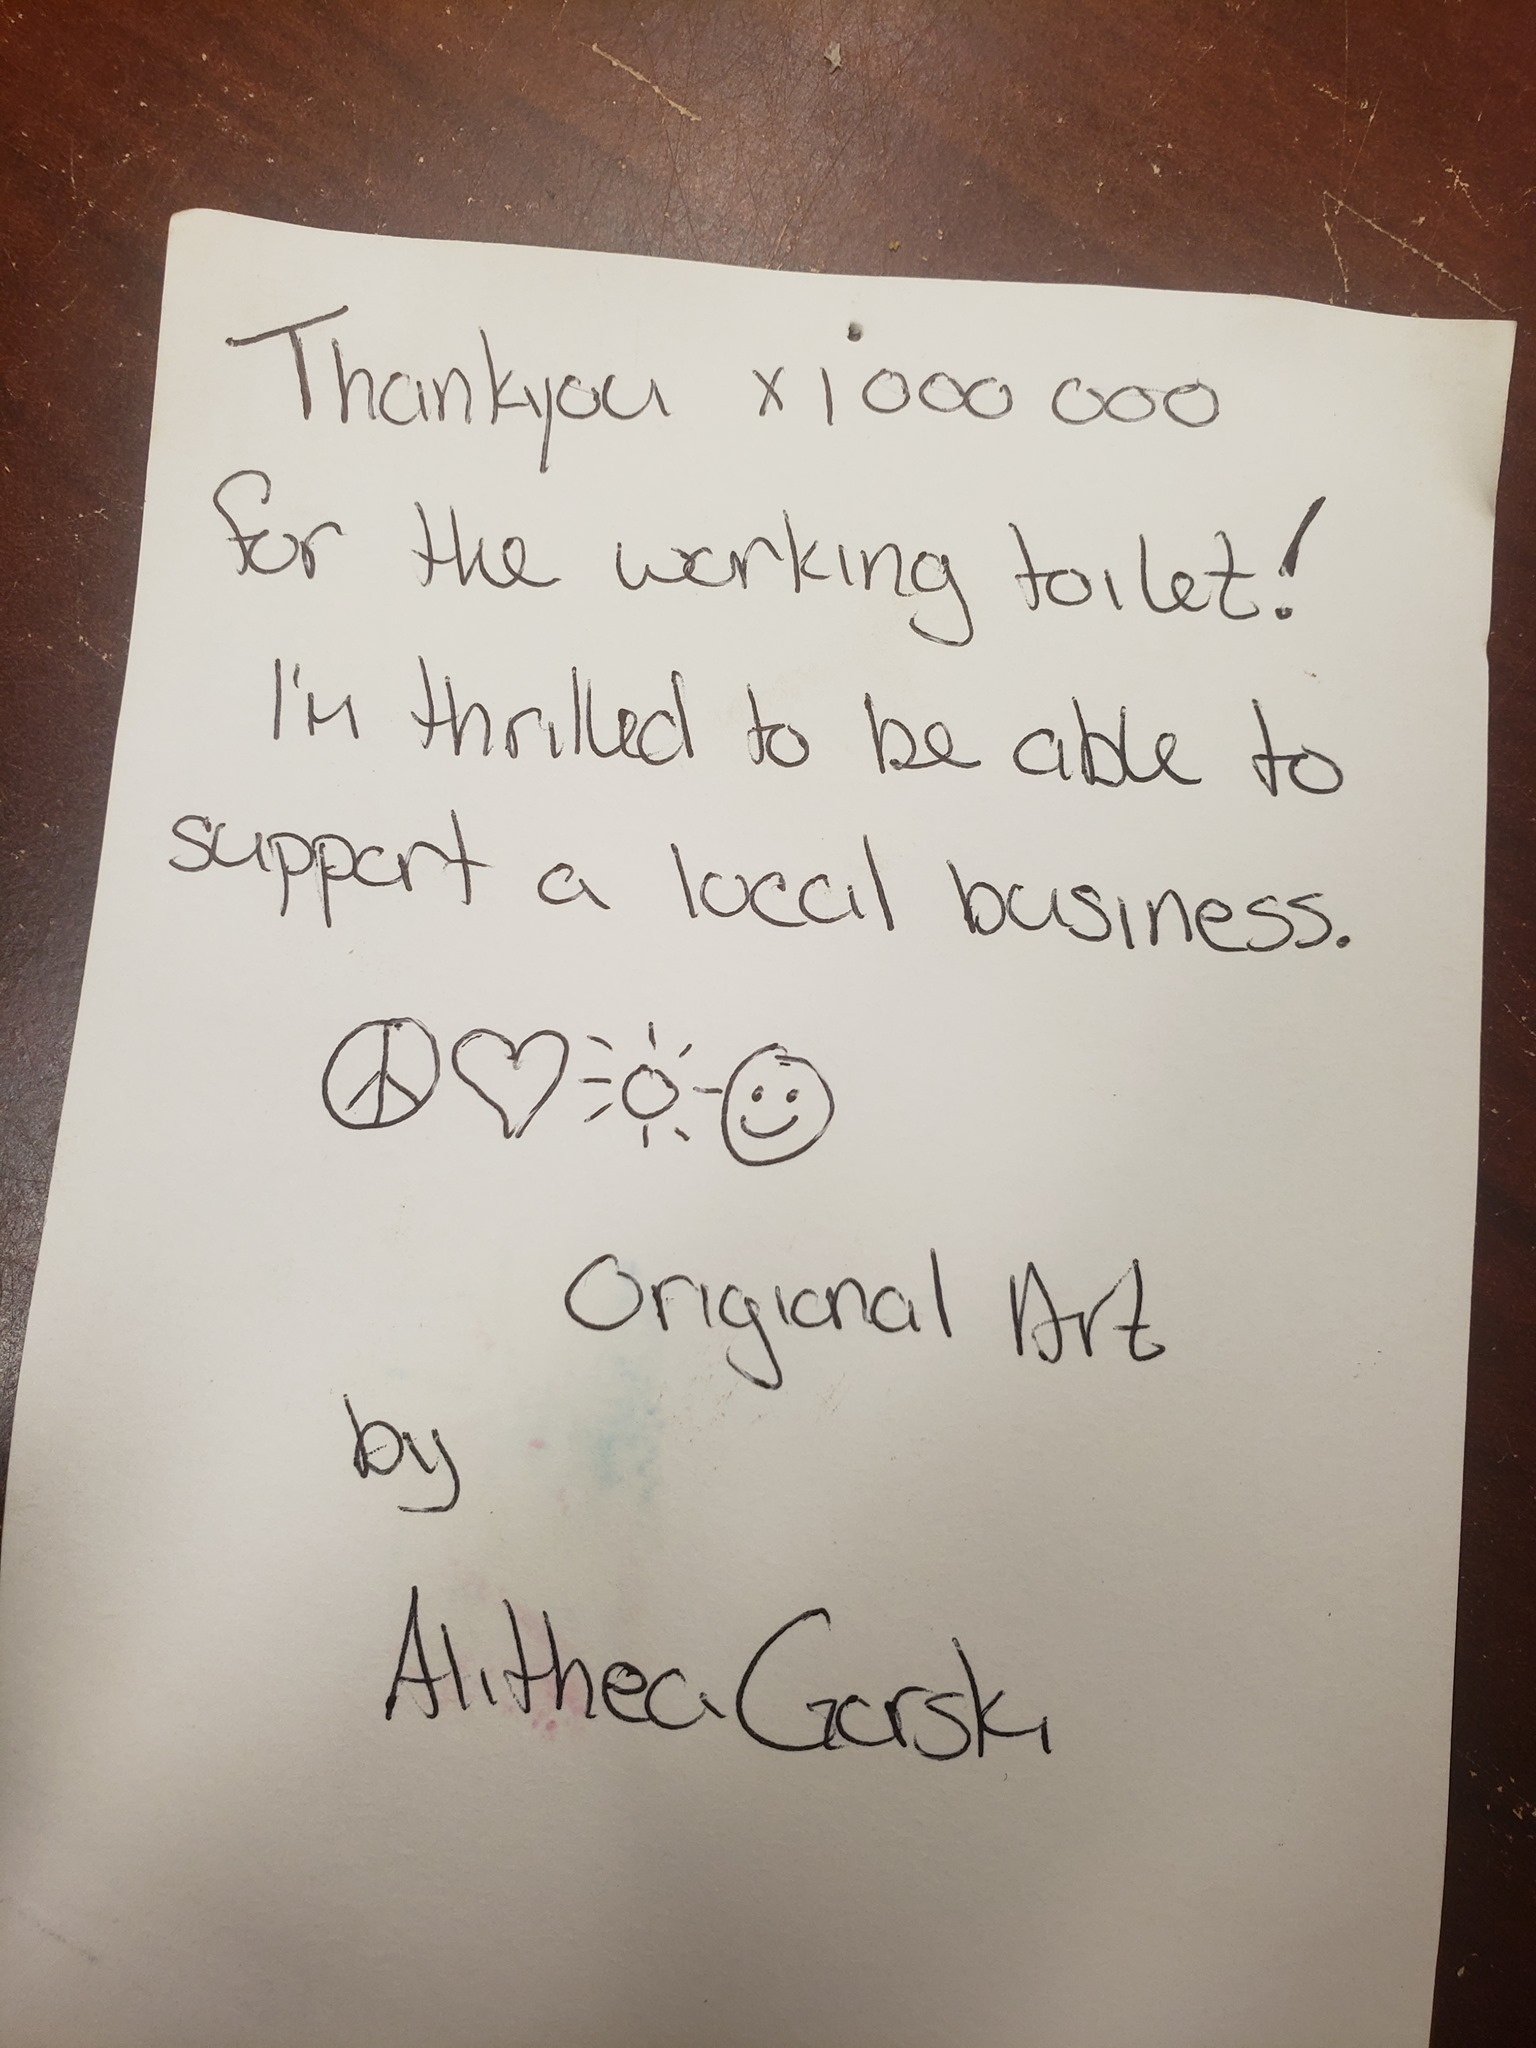 Thankyou x 1 000 000
for the working toilet!
I'm thrilled to be able to
support a local business.
Origional Art
by
Alithea Gorski